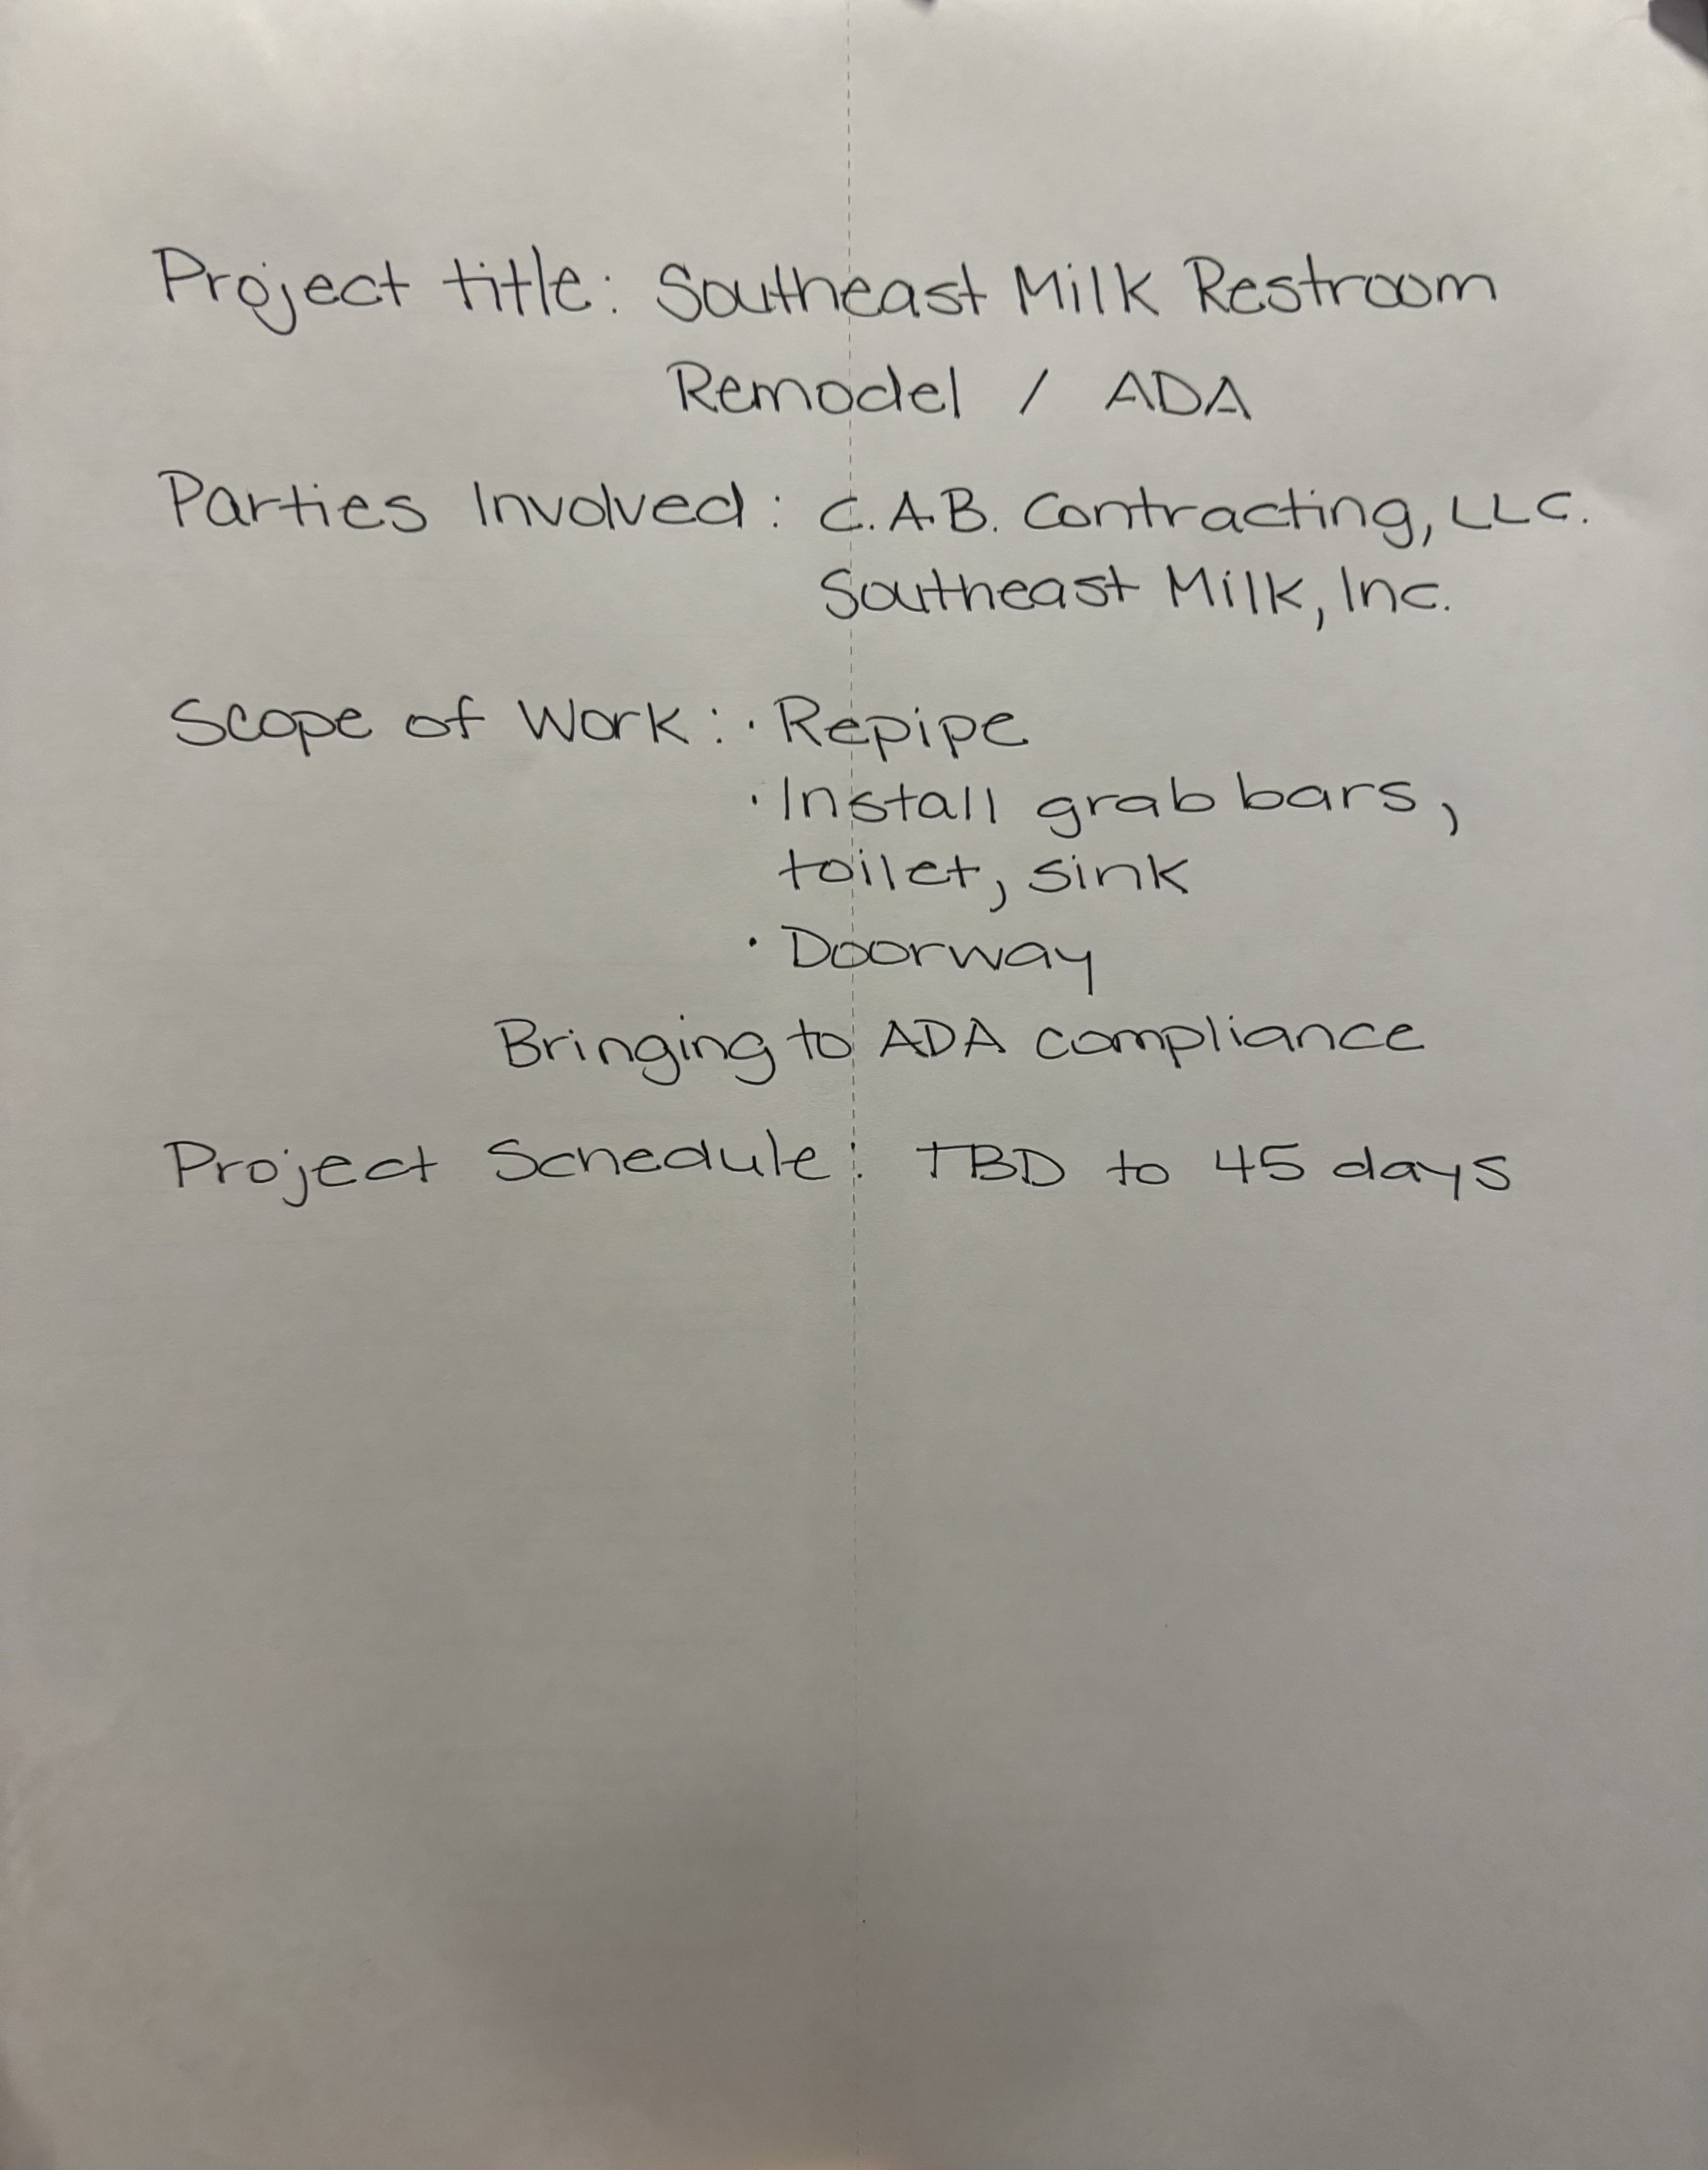 Project title: Southeast Milk Restroom
Remodel / ADA
Parties Involved: C.A.B. Contracting, LLC.
Southeast Milk, Inc.
Scope of Work: · Repipe
· Install grab bars,
toilet, sink
· Doorway
Bringing to ADA compliance
Project Schedule: TBD to 45 days